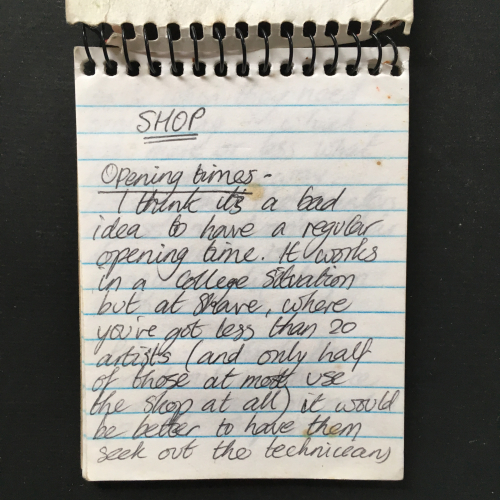 SHOP
Opening times -
I think it's a bad
idea to have a regular
opening time. It works
in a college situation
but at Shave, where
you've got less than 20
artists (and only half
of those at most use
the shop at all) it would
be better to have them
seek out the techniceans